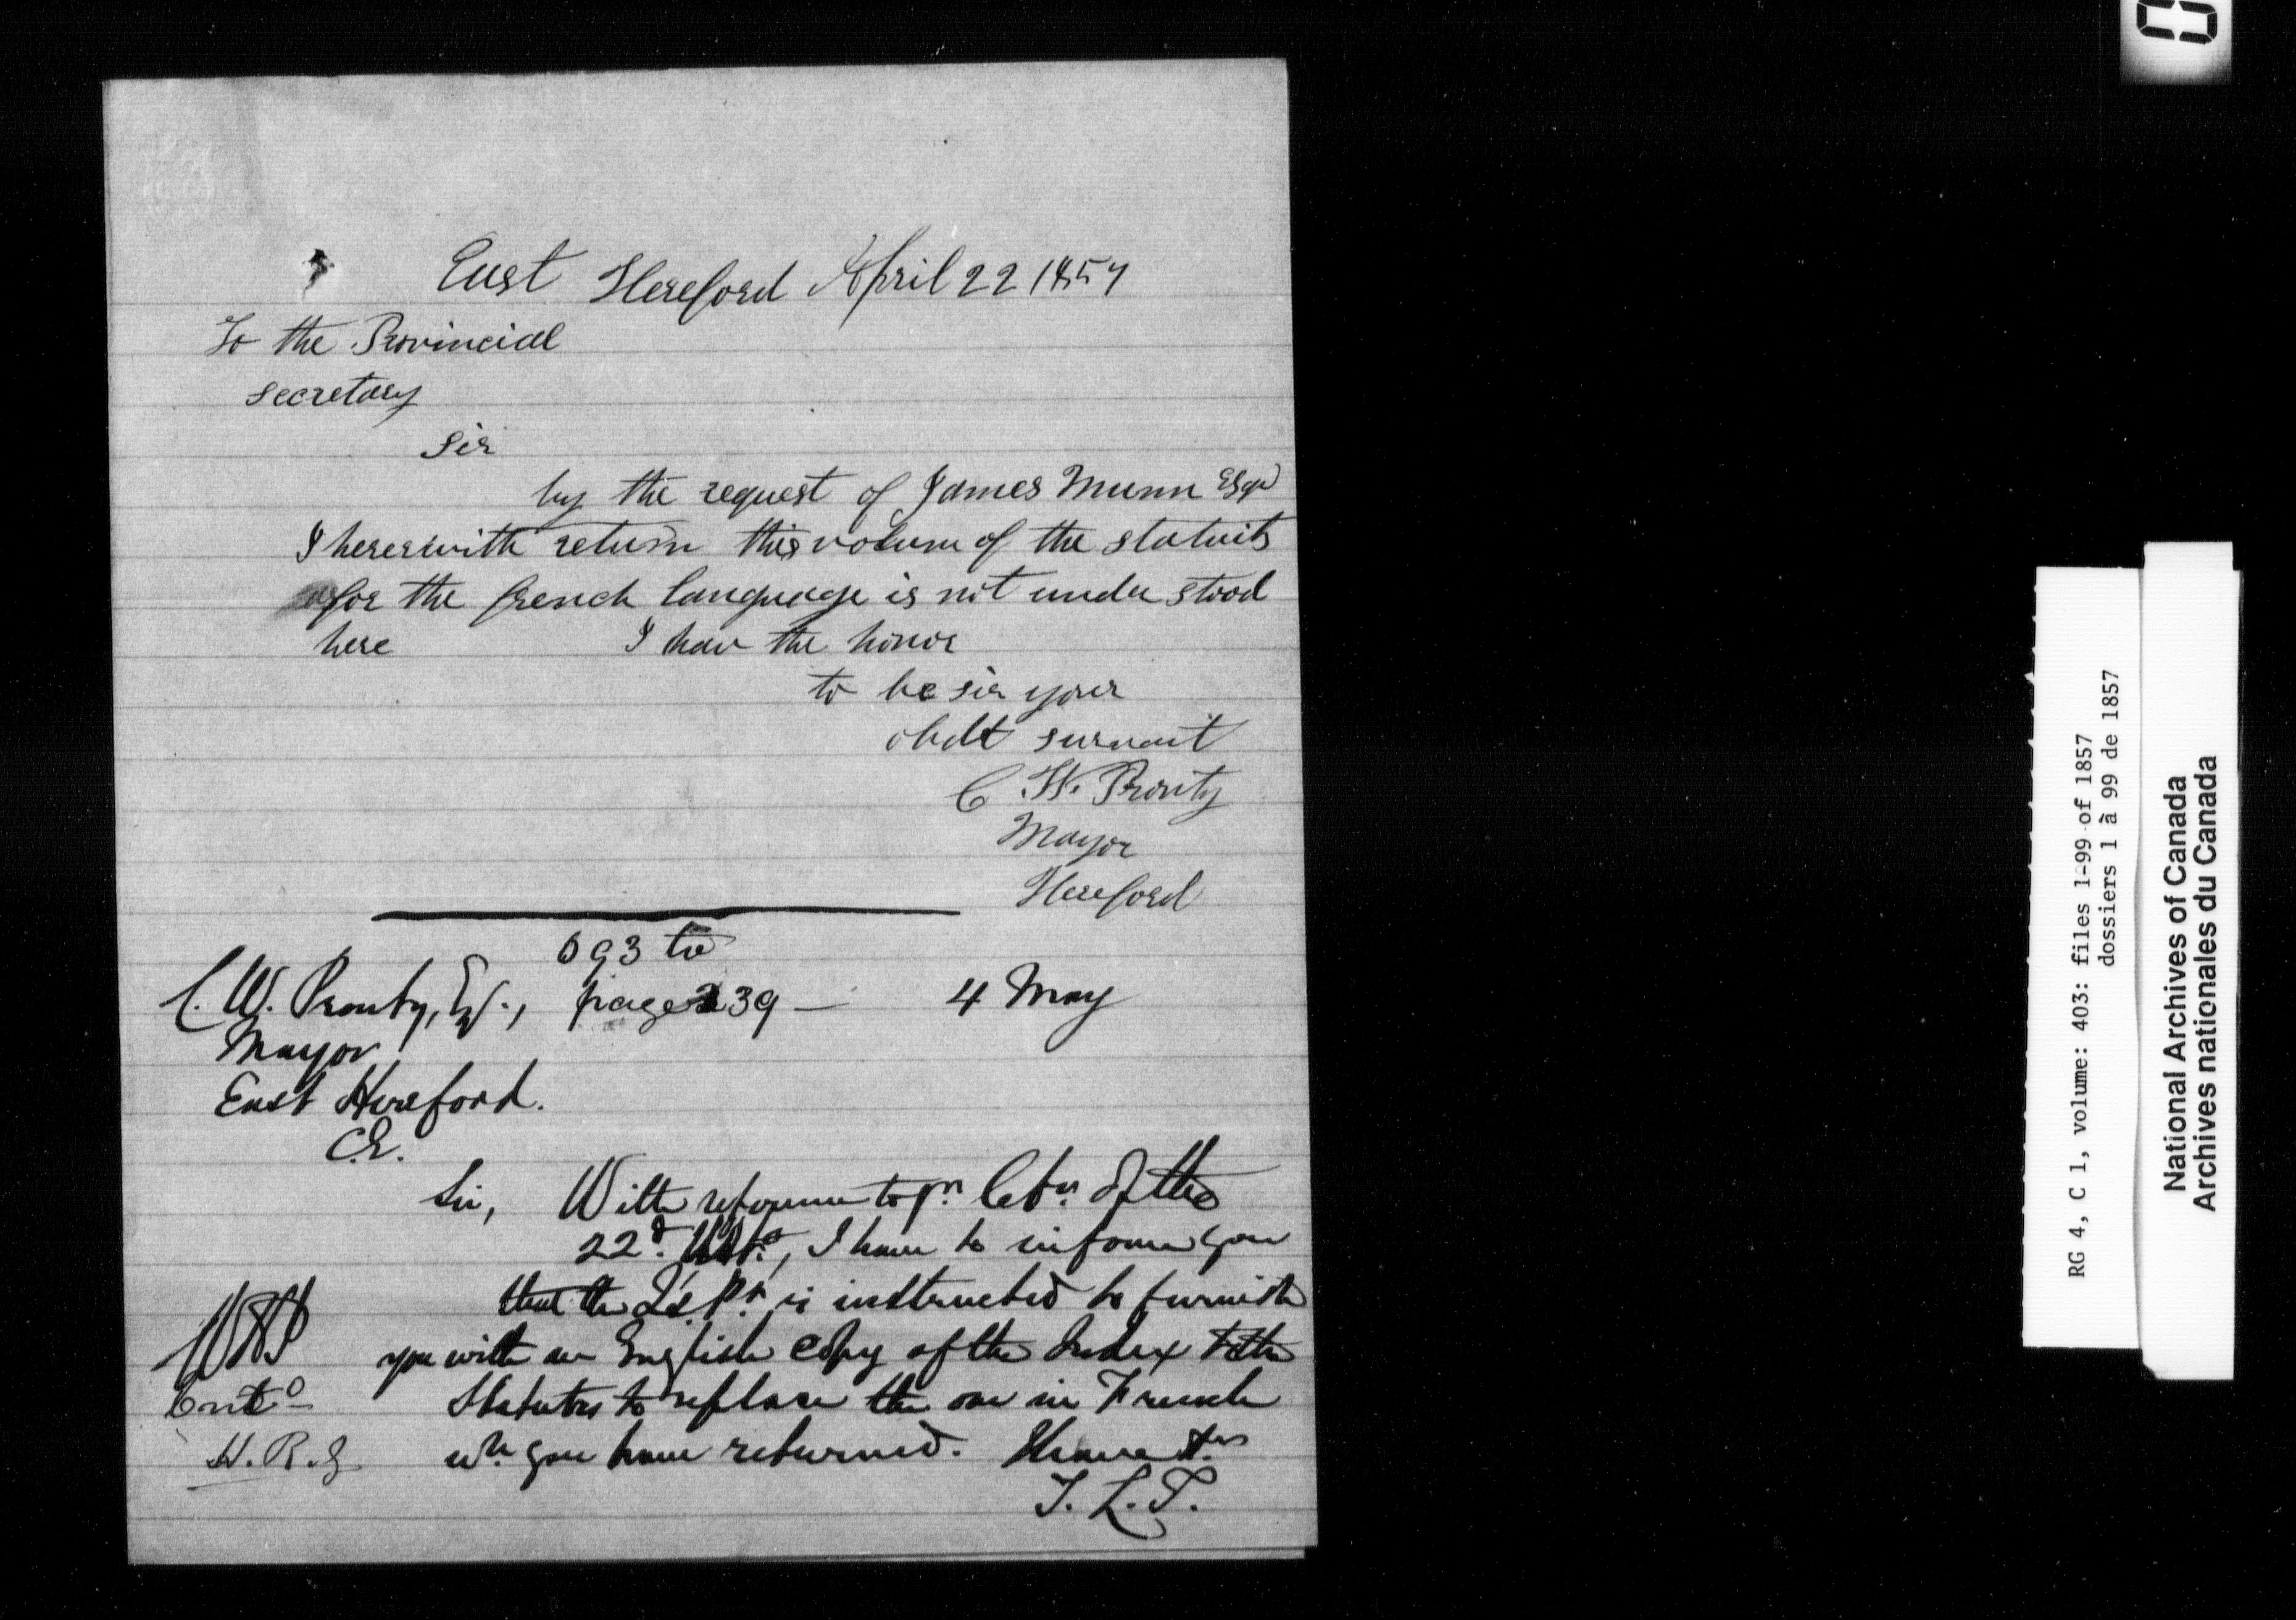 East Hereford April 22 1857
To the Provincial
secretary
Sir
by the request of James Munn Esqr
I hereswith return this volum of the statuits
for the french language is not under stood
here I hav the honor
to be sir your
obdt survant
C. W. Prouty
Mayor
Hereford
693 to
C. W. Prouty, Esq., page 239 — 4 May
Mayor
East Hereford.
C.E.
Sir, With reference to yr. letr. of the
22d. Ulto., I have to inform you
that the Q's. Pr. is instructed to furnish
you with an English copy of the Index to the
Statutes to replace the one in French
wh. you have returned. I have
T. L. T.
Entd
H. R. J.
RG 4, C 1, volume: 403: files 1-99 of 1857
dossiers 1 à 99 de 1857
National Archives of Canada
Archives nationales du Canada